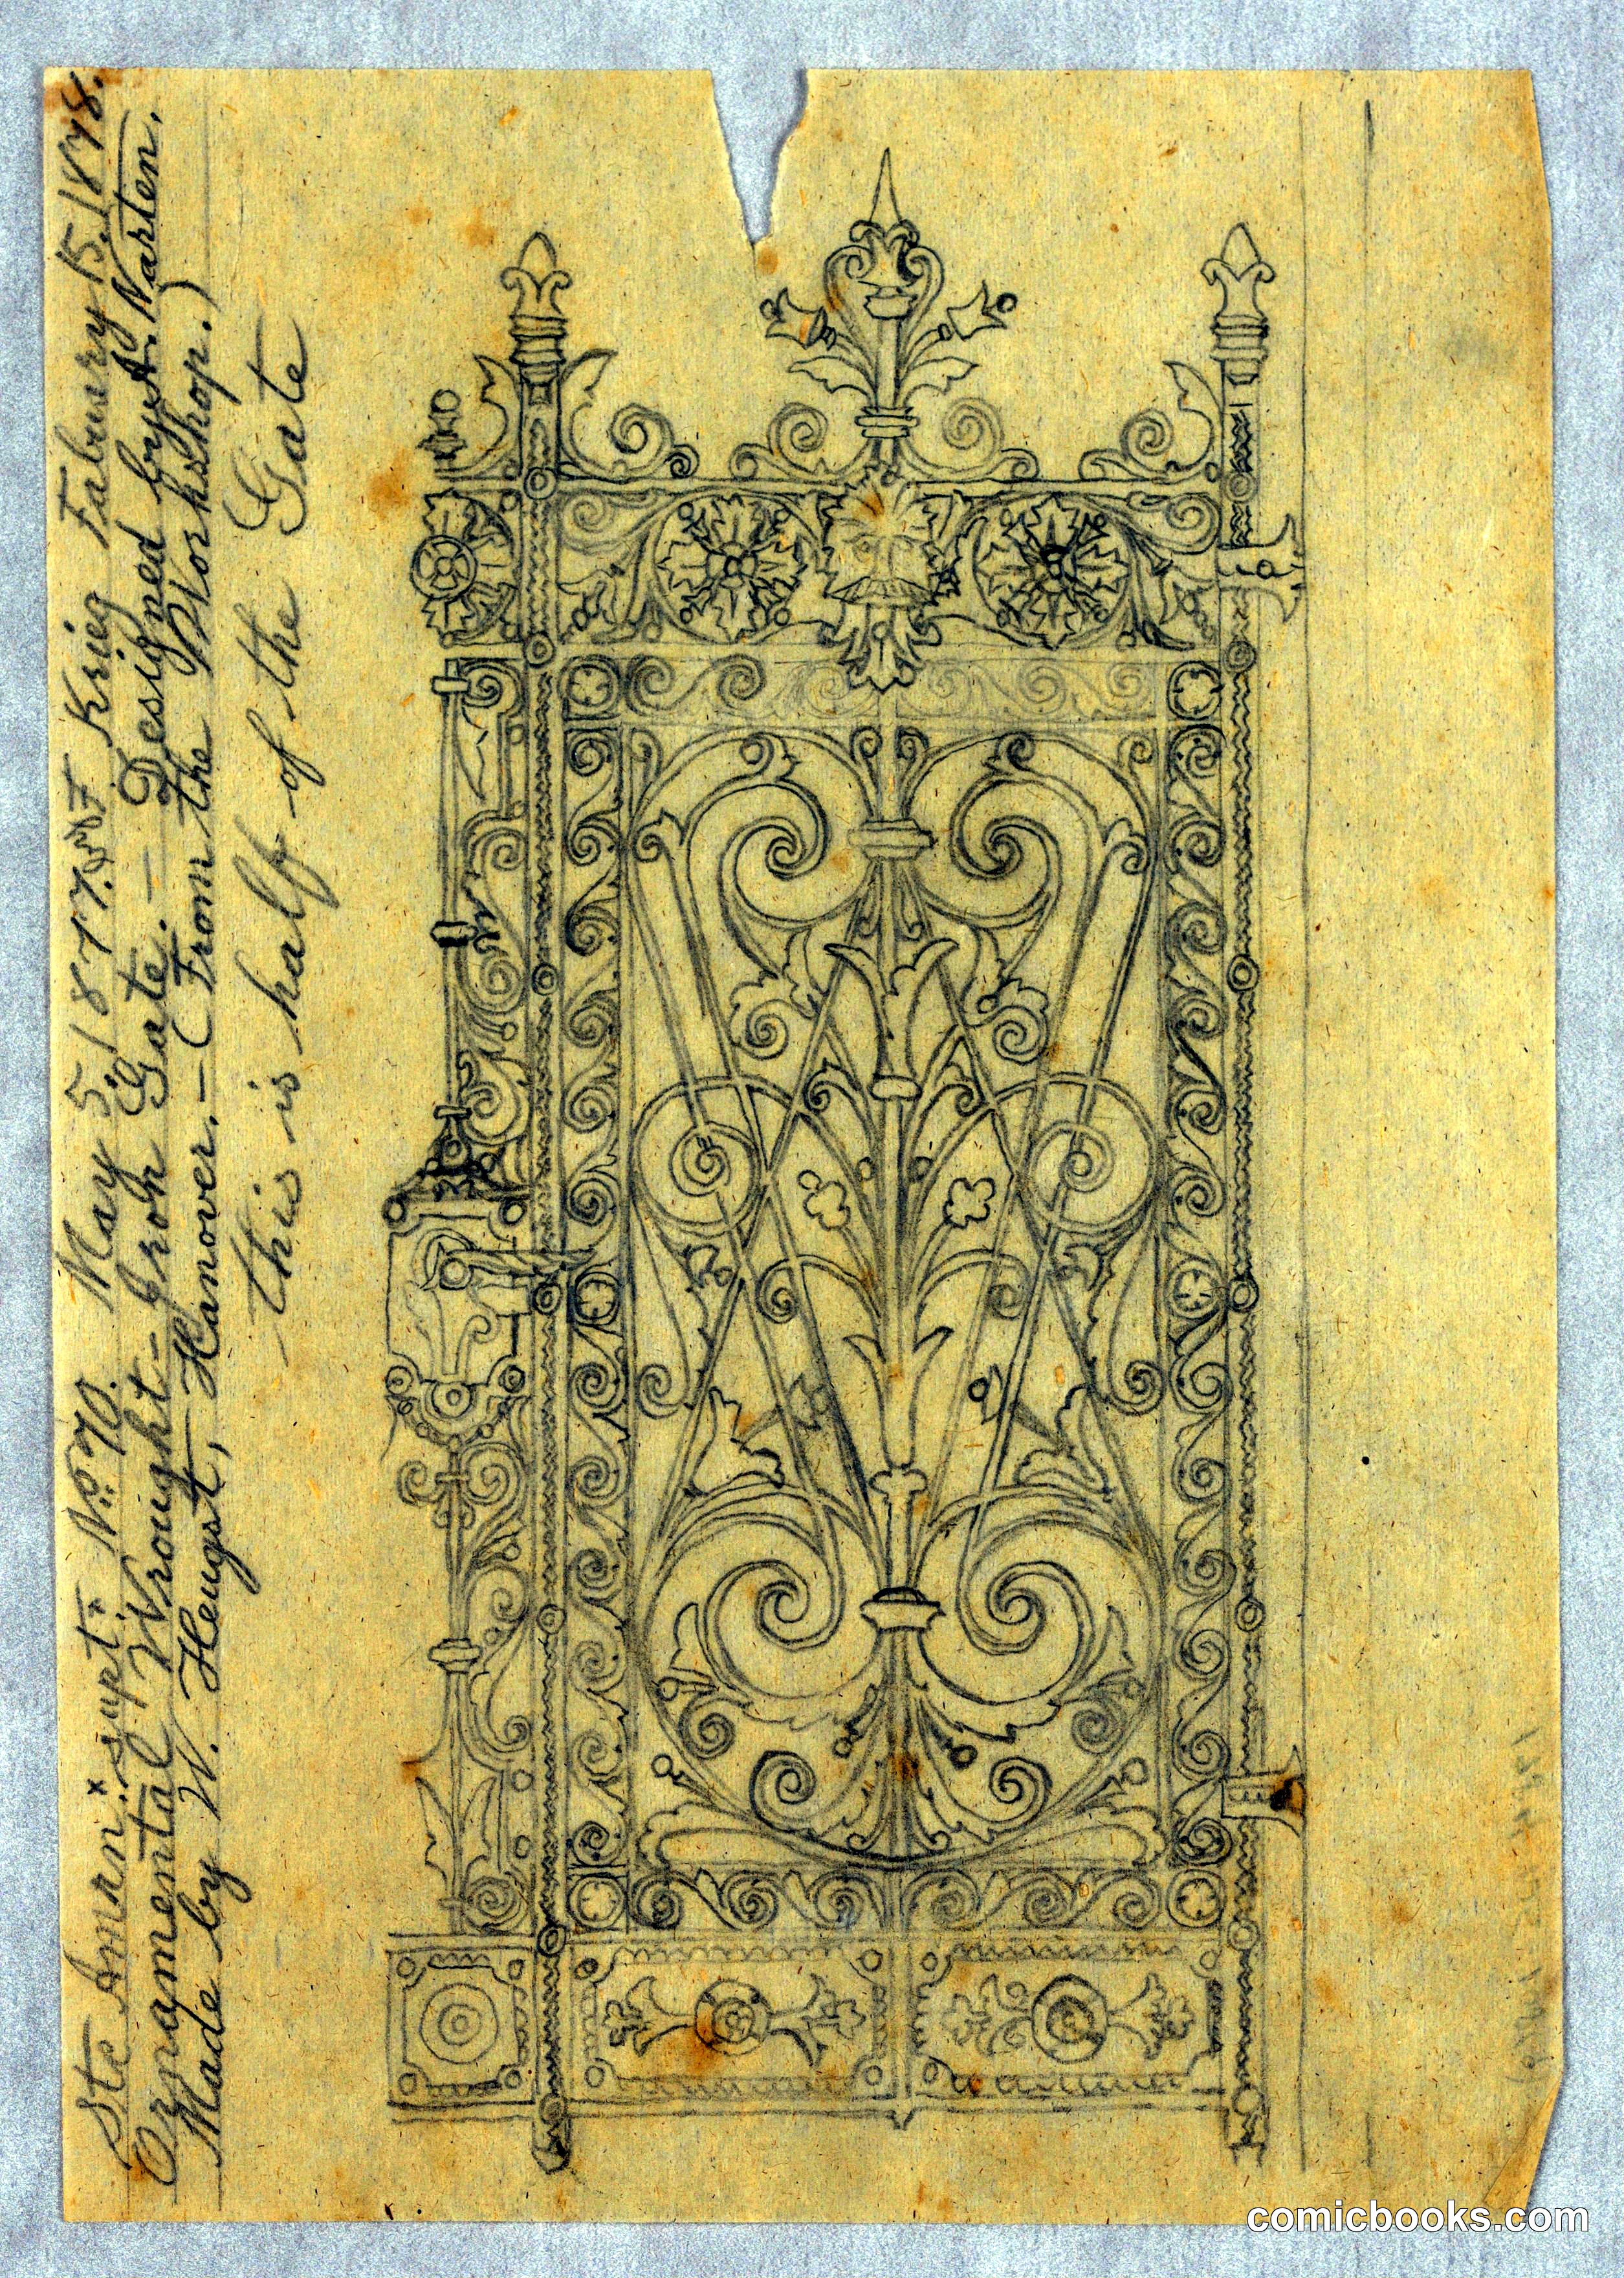 Ste Amern × supt. No. 70. May 5, 1877. Krieg Faburery 15. 1878.
Ornamental Wrought-Iron Gate. — Designed by A. Narten.
Made by W. Hengst, Hanover. — (From the Workshop.)
this is half of the Gate
comicbooks.com